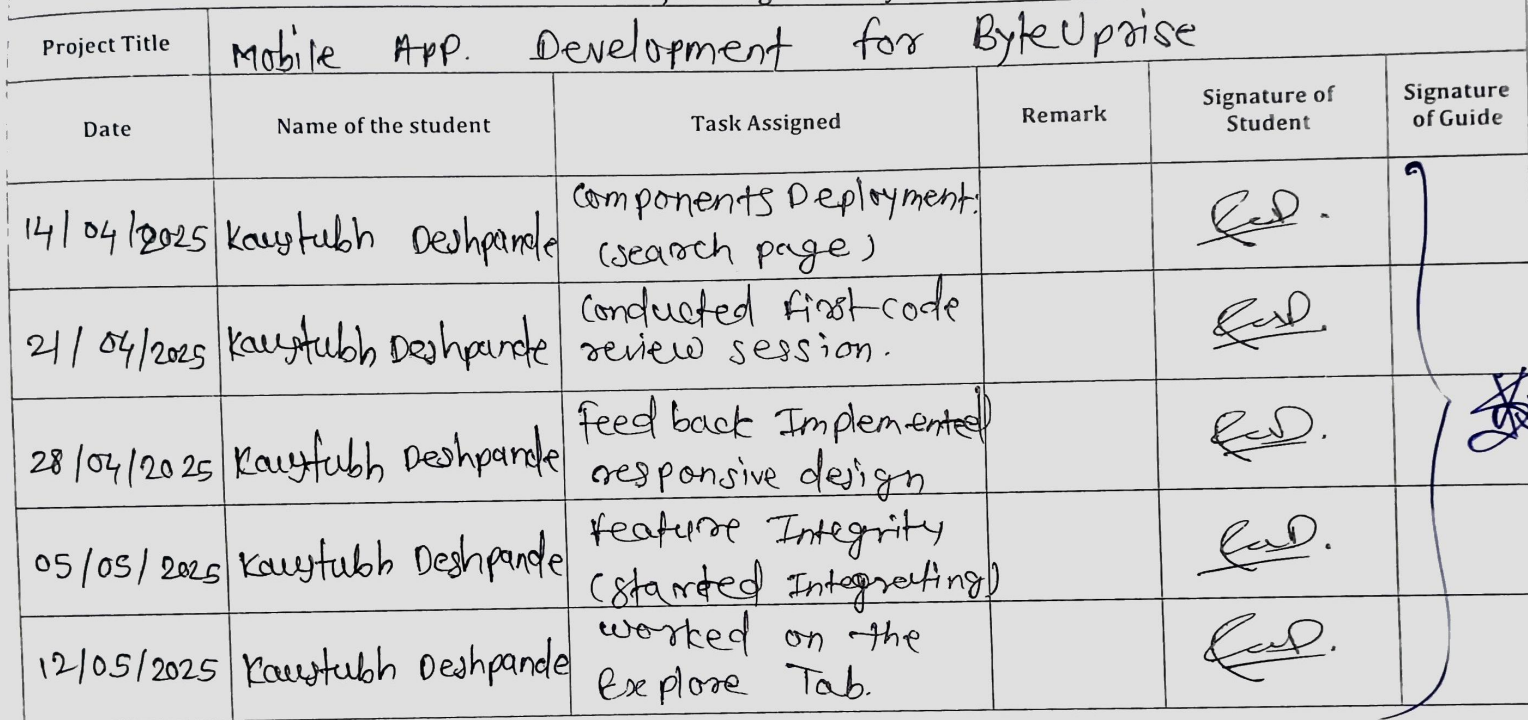 Project Title Mobile APP. Development for ByteUprise
Date Name of the student Task Assigned Remark Signature of Student Signature of Guide
14/04/2025 Kaustubh Deshpande Components Deployment.
(search page)
21/04/2025 Kaustubh Deshpande Conducted first code
review session.
28/04/2025 Kaustubh Deshpande Feedback Implemented
responsive design
05/05/2025 Kaustubh Deshpande Feature Integrity
(started Integrating)
12/05/2025 Kaustubh Deshpande worked on the
Explore Tab.